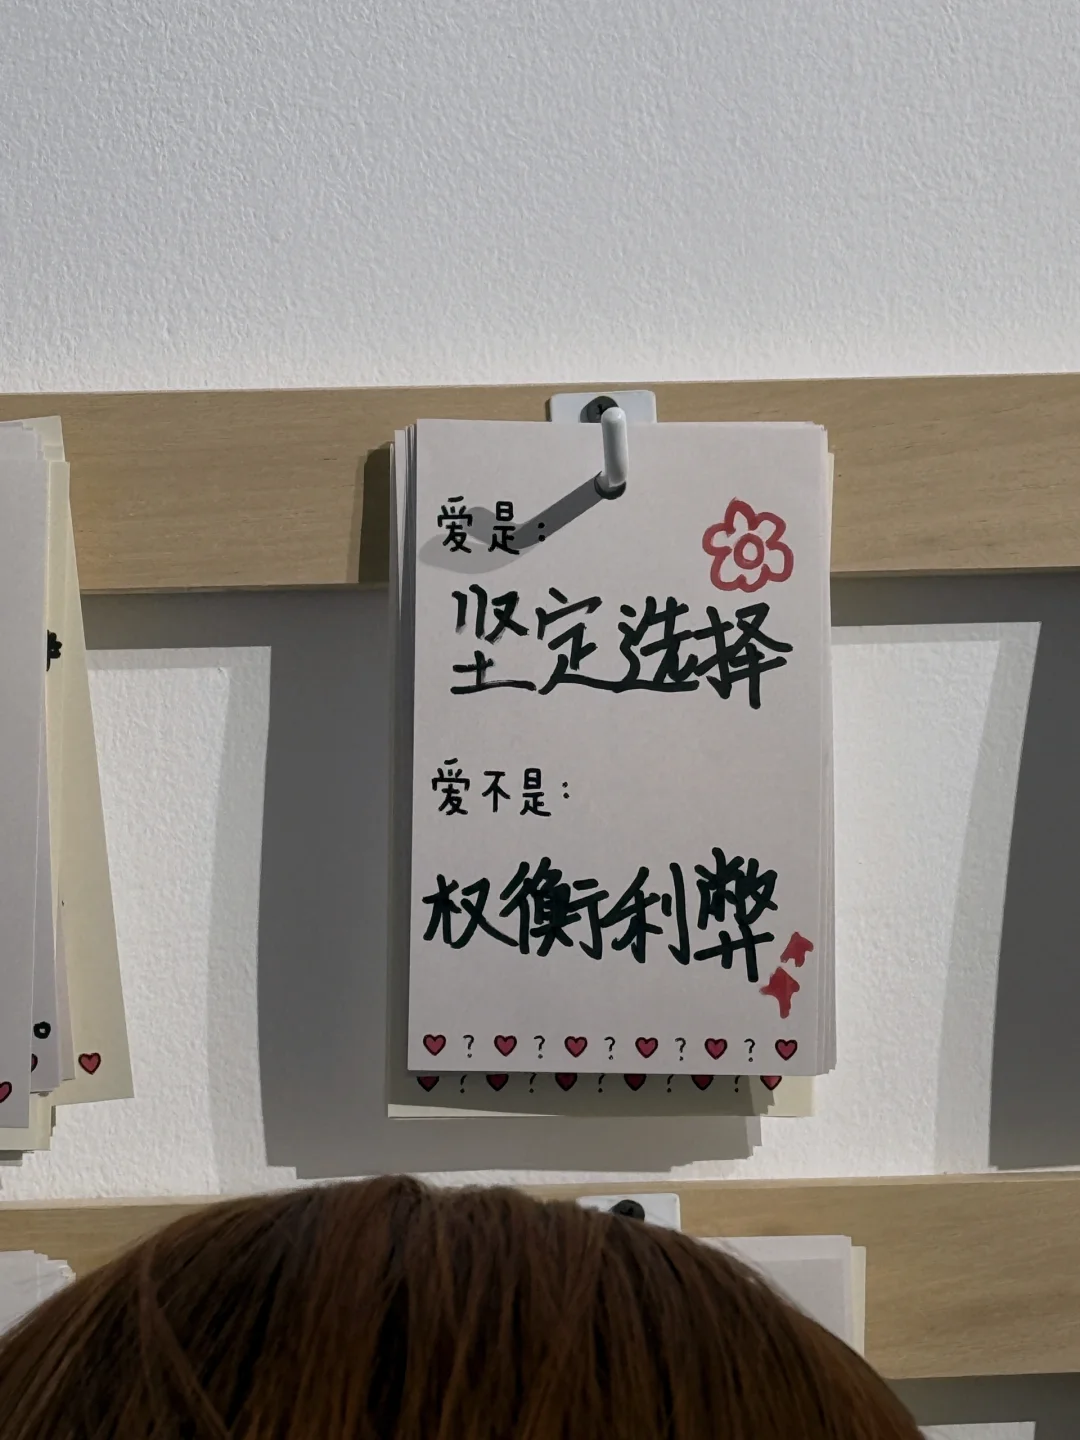 爱是：
坚定选择
爱不是：
权衡利弊
? ? ? ? ?
? ? ? ? ?